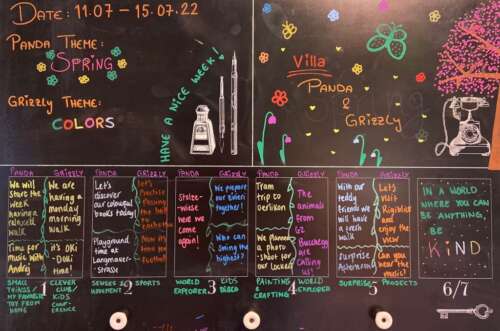 DATE: 11.07 – 15.07.22
PANDA THEME:
SPRING
GRIZZLY THEME:
COLORS
HAVE A NICE WEEK!
Villa
PANDA
&
GRIZZLY
PANDA
GRIZZLY
We will
store the
week
having a
relaxed
walk
We are
having a
monday
morning
walk
Time for
music with
Andrej
it's OKi
- DOKi
time!
SMALL
THINGS/
MY FAVORITE
TOY FROM
HOME
1
CLEVER
CLUB/
KIDS
CONFERENCE
PANDA
GRIZZLY
Let's
discover
our colourful
books today!
let's
Practise
passing
the ball
&
catching
Playground
time at
Langmauer-
strasse
Now it's
time for
Football
SENSES &
MOVEMENT
2
SPORTS
PANDA
GRIZZLY
Stolze-
wiese
here we
come
again!
We prepare
our dinner
together!
Who can
build the
highest?
WORLD
EXPLORER
3
KIDS
PANDA
GRIZZLY
Tram
trip to
Oerlikon
The
animals
from
GZ
Buchegg
are
calling
US!
We planned
a photo
-shoot for
our Locker
PAINTING
&
CRAFTING
4
WORLD
EXPLORER
PANDA
GRIZZLY
With our
teddy
friends we
will have
a fresh
walk
Let's
visit
Rigiblick
and
enjoy the
view
Surprise
Afternoon
Can you
hear the
music?
SURPRISE
5
PROJECTS
IN A WORLD
WHERE YOU CAN
BE ANYTHING,
BE
KiND
6/7